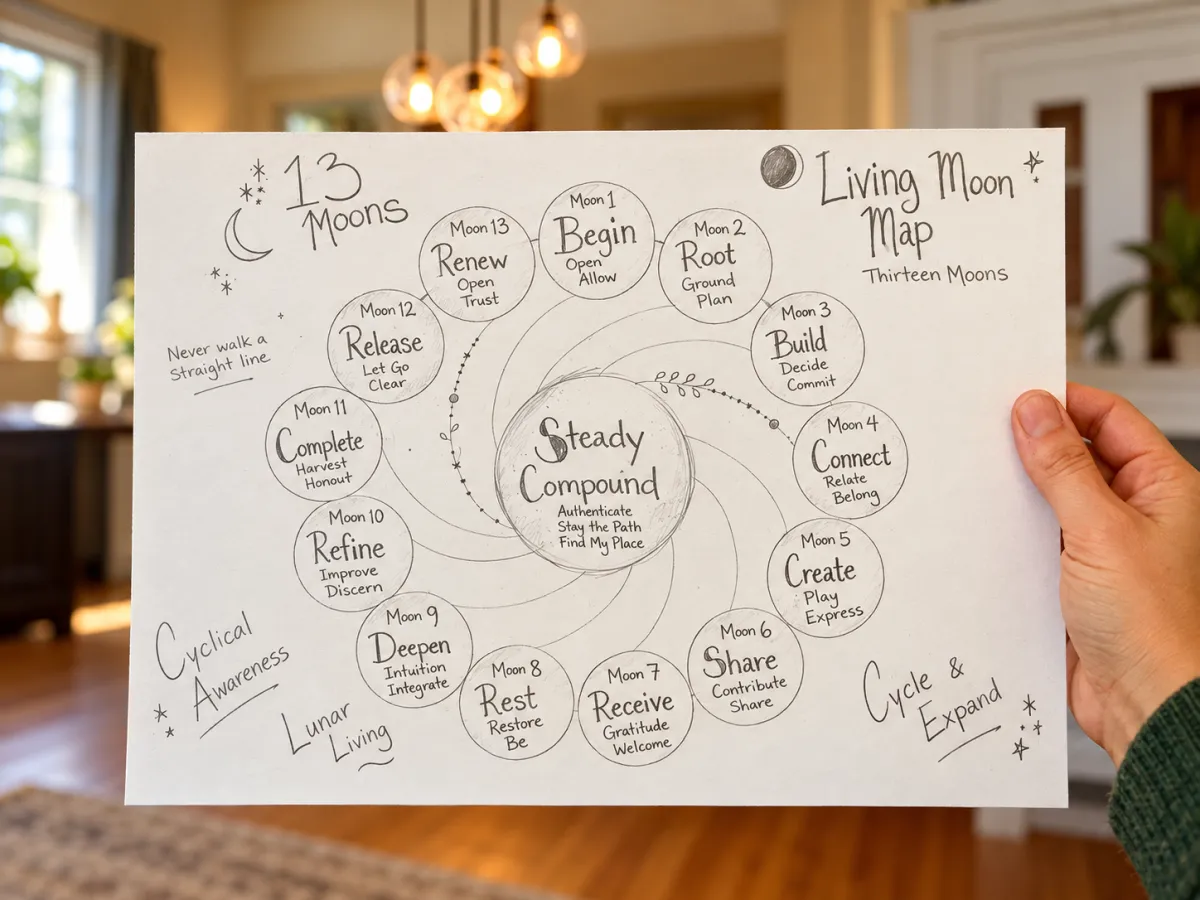 13
Moons
Living Moon
Map
Thirteen Moons
Never walk a
straight line
Moon 1
Begin
Open
Allow
Moon 2
Root
Ground
Plan
Moon 3
Build
Decide
Commit
Moon 4
Connect
Relate
Belong
Moon 5
Create
Play
Express
Moon 6
Share
Contribute
Share
Moon 7
Receive
Gratitude
Welcome
Moon 8
Rest
Restore
Be
Moon 9
Deepen
Intuition
Integrate
Moon 10
Refine
Improve
Discern
Moon 11
Complete
Harvest
Honout
Moon 12
Release
Let Go
Clear
Moon 13
Renew
Open
Trust
Steady
Compound
Authenticate
Stay the Path
Find My Place
Cyclical
Awareness
Lunar
Living
Cycle &
Expand